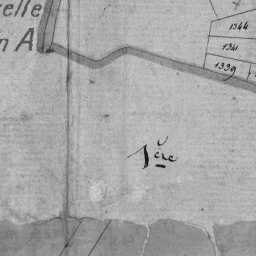 elle
n A
1344
1341
1339
1ère